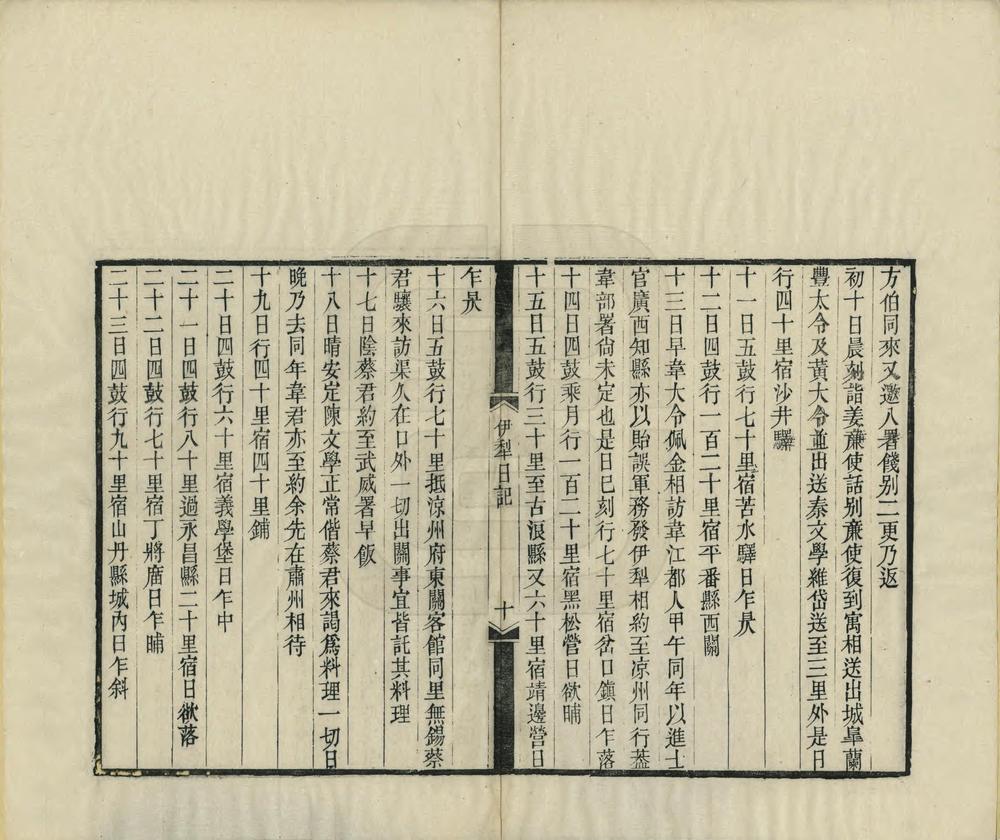 方伯同來又邀入署餞別二更乃返
初十日晨刻詣姜廉使話別廉使復到寓相送出城皐蘭
豐太令及黃大令並出送泰文學維岱送至三里外是日
行四十里宿沙井驛
十一日五鼓行七十里宿苦水驛日乍昃
十二日四鼓行一百二十里宿平番縣西關
十三日早韋大令佩金相訪韋江都人甲午同年以進士
官廣西知縣亦以貽誤軍務發伊犁相約至凉州同行葢
韋部署尙未定也是日巳刻行七十里宿岔口鎭日乍落
十四日四鼓乘月行一百二十里宿黑松營日欲晡
十五日五鼓行三十里至古浪縣又六十里宿靖邊營日
伊犁日記
十
乍昃
十六日五鼓行七十里抵涼州府東關客館同里無錫蔡
君驤來訪渠久在口外一切出關事宜皆託其料理
十七日陰蔡君約至武威署早飯
十八日晴安定陳文學正常偕蔡君來謁爲料理一切日
晚乃去同年韋君亦至約余先在肅州相待
十九日行四十里宿四十里鋪
二十日四鼓行六十里宿義學堡日乍中
二十一日四鼓行八十里過永昌縣二十里宿日欲落
二十二日四鼓行七十里宿丁將廟日乍晡
二十三日四鼓行九十里宿山丹縣城內日乍斜